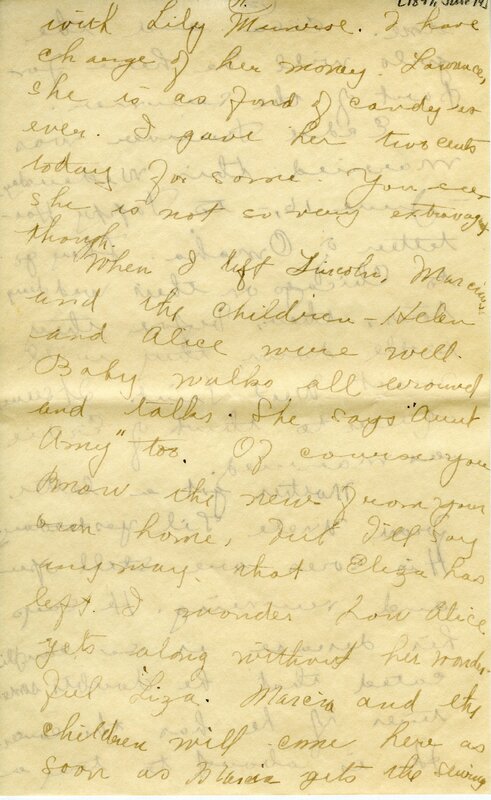 with Lily Munroe. I have
charge of her money. Lawrence,
she is as fond of candy as
ever. I gave her two cents
today for some. You see
she is not so very extravagant
though.
When I left Lincoln, Marcia
and the children - Helen
and Alice were well.
Baby walks all around
and talks. She says "Aunt
Amy" too. Of course you
know the news from your
own home, but I'll say
anyway, that Eliza has
left. I wonder how Alice
gets along without her wonder-
ful 'Liza. Marcia and the
children will come here as
soon as Marcia gets the sewing